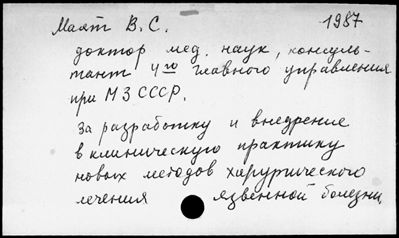 Маят В. С. 1987
доктор мед. наук, консуль-
тант 4го Главного управления
при МЗ СССР.
За разработку и внедрение
в клиническую практику
новых методов хирургического
лечения язвенной болезни